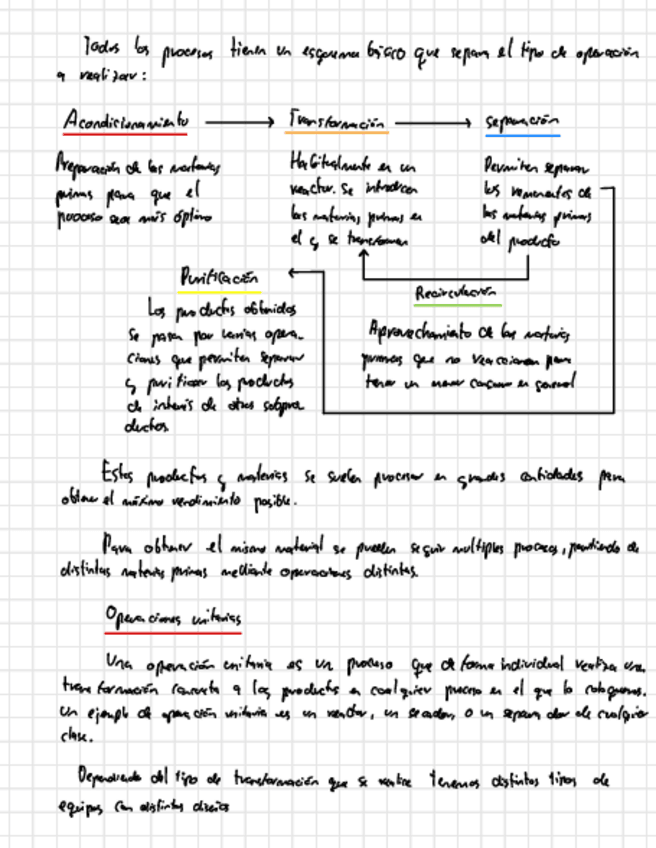 Todos los procesos tienen un esquema básico que separa el tipo de operación
a realizar:
Acondicionamiento
Transformación
separación
Preparación de las materias
primas para que el
proceso sea más óptimo
Habitualmente en un
reactor. Se introducen
las materias primas en
el y se transforman
Permiten separar
los remanentes de
las materias primas
del producto
Purificación
Los productos obtenidos
se pasan por varias opera-
ciones que permiten separar
y purificar los productos
de interés de otros subpro
ductos.
Recirculación
Aprovechamiento de las materias
primas que no reaccionan para
tener un menor consumo en general
Estos productos y materias se suelen procesar en grandes cantidades para
obtener el máximo rendimiento posible.
Para obtener el mismo material se pueden seguir multiples procesos, partiendo de
distintas materias primas mediante operaciones distintas.
Operaciones unitarias
Una operación unitaria es un proceso que de forma individual realiza una
transformación concreta a los productos en cualquier proceso en el que lo coloquemos.
Un ejemplo de operación unitaria es un reactor, un secador, o un separador de cualquier
clase.
Dependiendo del tipo de transformación que se realice tenemos distintos tipos de
equipos con distintos diseños